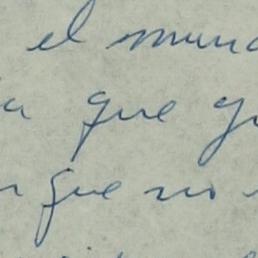 el mund
a que qu
rque no